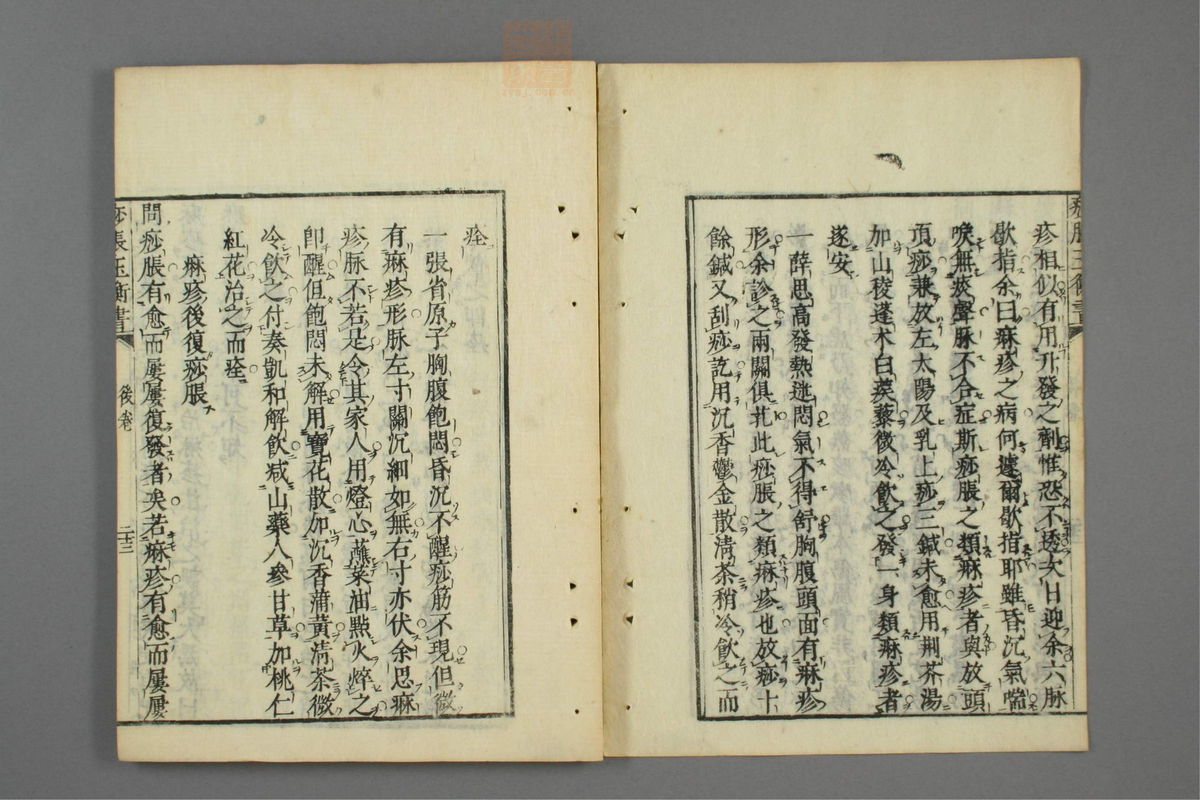 疹相似有用升發之劑惟恐不透次日迎余六脉
歇指余曰痳疹之病何遽爾歇指耶雖昏沉氣喘
唤無痰聲脉不合症斯痧脹之類痳疹者與放頭
頂痧兼放左太陽及乳上痧三鍼未愈用荆芥湯
加山稜蓬术白蒺藜微冷飲之發一身類痳疹者
遂安
一薛思高發熱迷悶氣不得舒胸腹頭面有痳疹
形余診之兩關俱芤此痧脹之類痳疹也放痧十
餘鍼又刮痧訖用沉香鬱金散清茶稍冷飲之而
痊
一張省原子胸腹飽悶昏沉不醒痧筋不現但微
有痳疹形脉左寸關沉細如無右寸亦伏余思痳
疹脉不若是令其家人用燈心蘸菜油點火焠之
卽醒但飽悶未解用寶花散加沉香蒲黄清茶微
冷飲之付奏凱和解飲减山藥人參甘草加桃仁
紅花治之而痊
痳疹後復痧脹
問痧脹有愈而屢屢復發者矣若痳疹有愈而屢屢
痧脹玉衡書
後卷
二十三